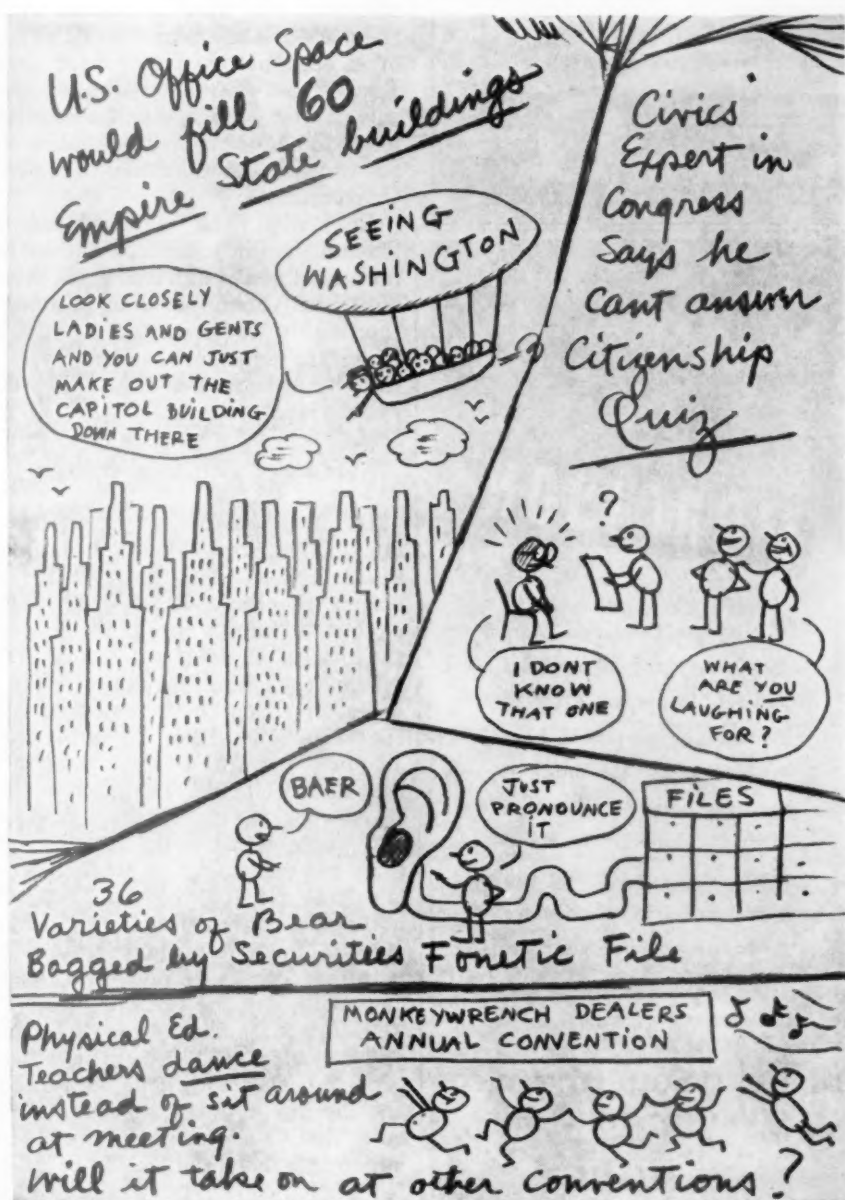 U.S. Office Space
would fill 60
Empire State buildings
SEEING
WASHINGTON
LOOK CLOSELY
LADIES AND GENTS
AND YOU CAN JUST
MAKE OUT THE
CAPITOL BUILDING
DOWN THERE
Civics
Expert in
Congress
Says he
Cant answer
Citizenship
Quiz
?
I DONT
KNOW
THAT ONE
WHAT
ARE YOU
LAUGHING
FOR?
BAER
JUST
PRONOUNCE
IT
FILES
36
Varieties of Bear
Bagged by Securities Fonetic File
Physical Ed.
Teachers dance
instead of sit around
at meeting.
Will it take on at other conventions?
MONKEYWRENCH DEALERS
ANNUAL CONVENTION